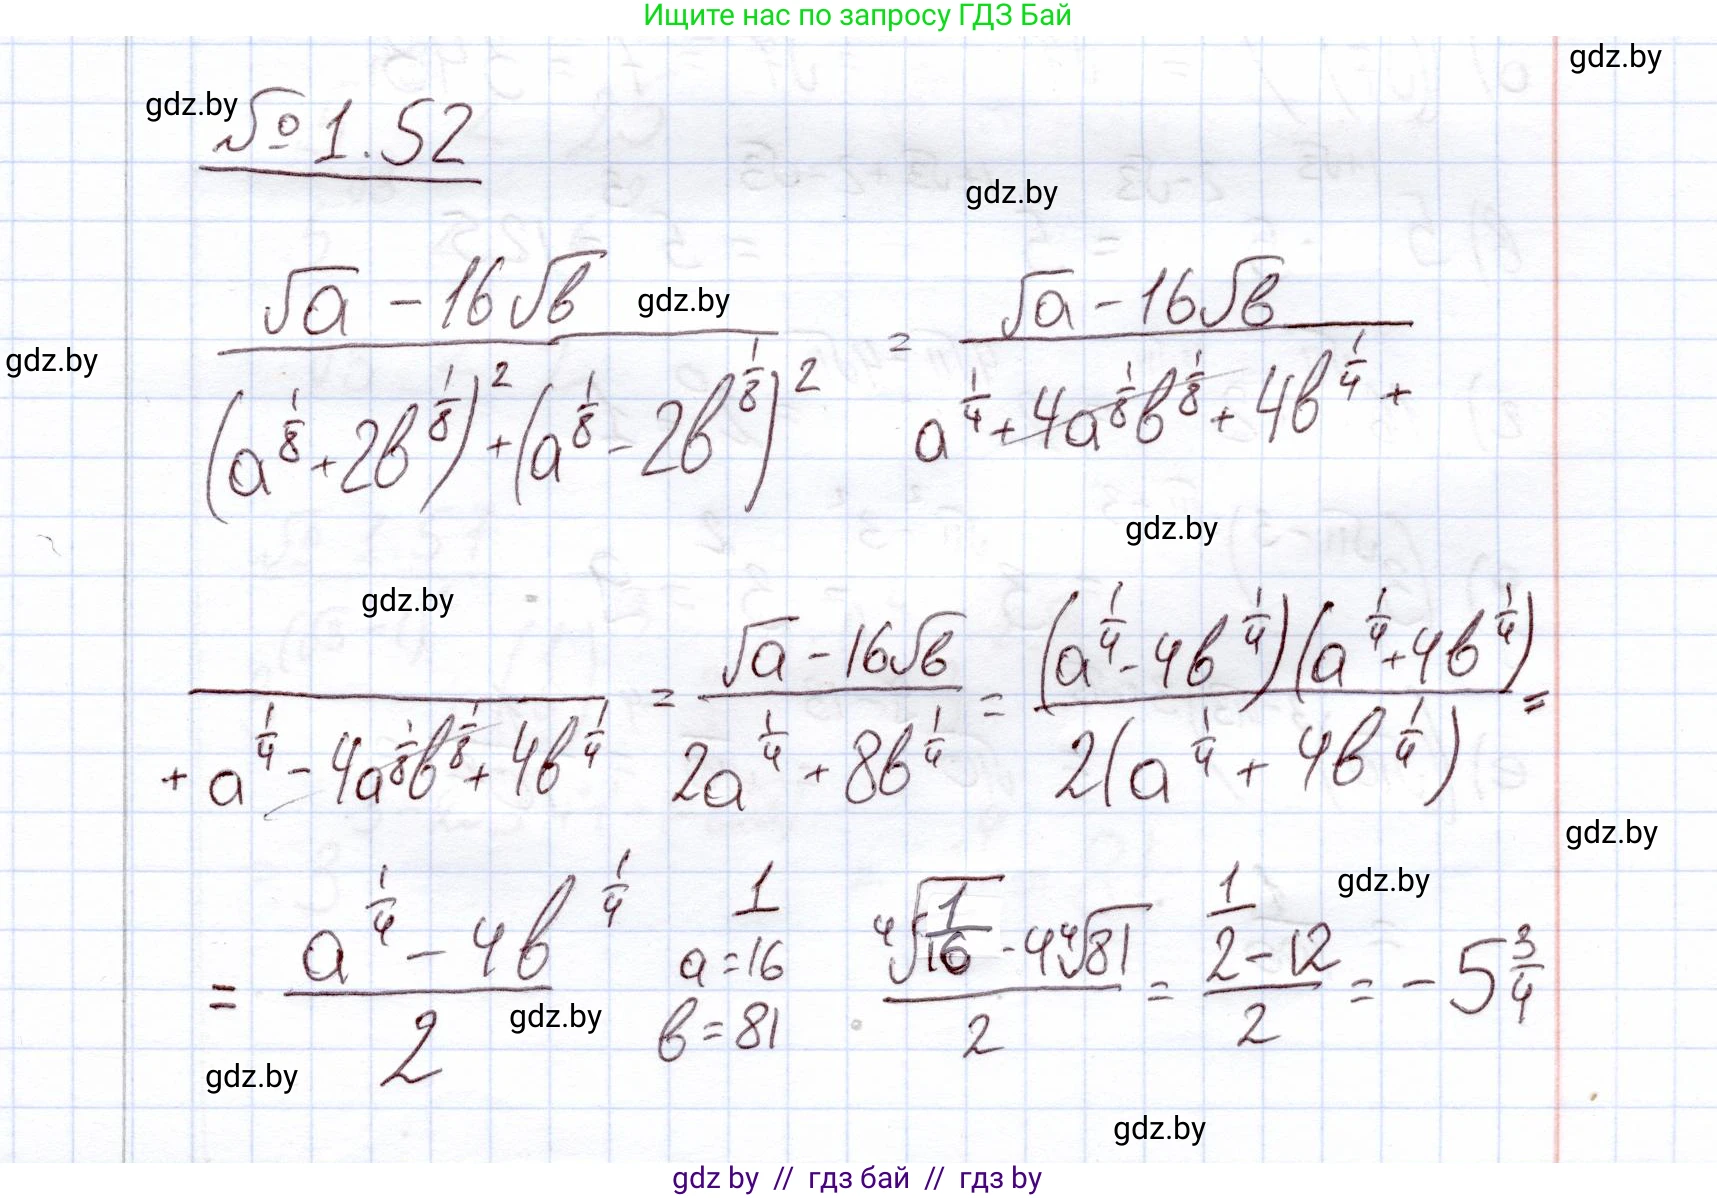 Ищите нас по запросу ГДЗ Бай
gdz.by
gdz.by
№ 1.52
gdz.by
(√a - 16√b) / ((a^(1/8) + 2b^(1/8))^2 + (a^(1/8) - 2b^(1/8))^2) = (√a - 16√b) / (a^(1/4) + 4a^(1/8)b^(1/8) + 4b^(1/4) +
gdz.by
gdz.by
gdz.by
gdz.by
+ a^(1/4) - 4a^(1/8)b^(1/8) + 4b^(1/4)) = (√a - 16√b) / (2a^(1/4) + 8b^(1/4)) = ((a^(1/4) - 4b^(1/4))(a^(1/4) + 4b^(1/4))) / (2(a^(1/4) + 4b^(1/4))) =
gdz.by
gdz.by
= (a^(1/4) - 4b^(1/4)) / 2   a = 1/16   b = 81   (⁴√(1/16) - 4⁴√81) / 2 = (1/2 - 12) / 2 = -5 3/4
gdz.by
gdz.by
gdz.by
gdz by // гдз бай // гдз by